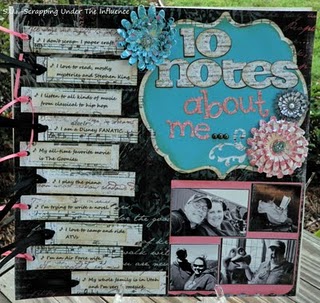 SUI - Scrapping Under The Influence
10
notes
about
me...
I don't scrap. I paper craft
I love to read, mostly
mysteries and Stephen King
I listen to all kinds of movie
from classical to hip hop
I am a Disney FANATIC
My all-time favorite movie
is The Goonies
I play the piano
I'm trying to write a novel
I love to camp and ride
ATVs
I'm an Air Force wife
My whole family is in Utah
and I'm very